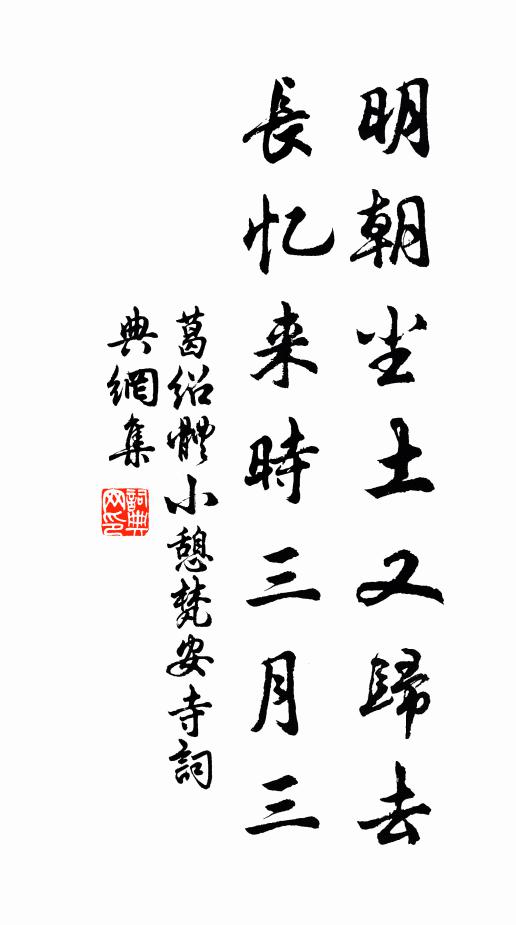 明朝尘土又歸去
長忆来時三月三
葛绍體小憩梵安寺詞
典網集
詞典网印